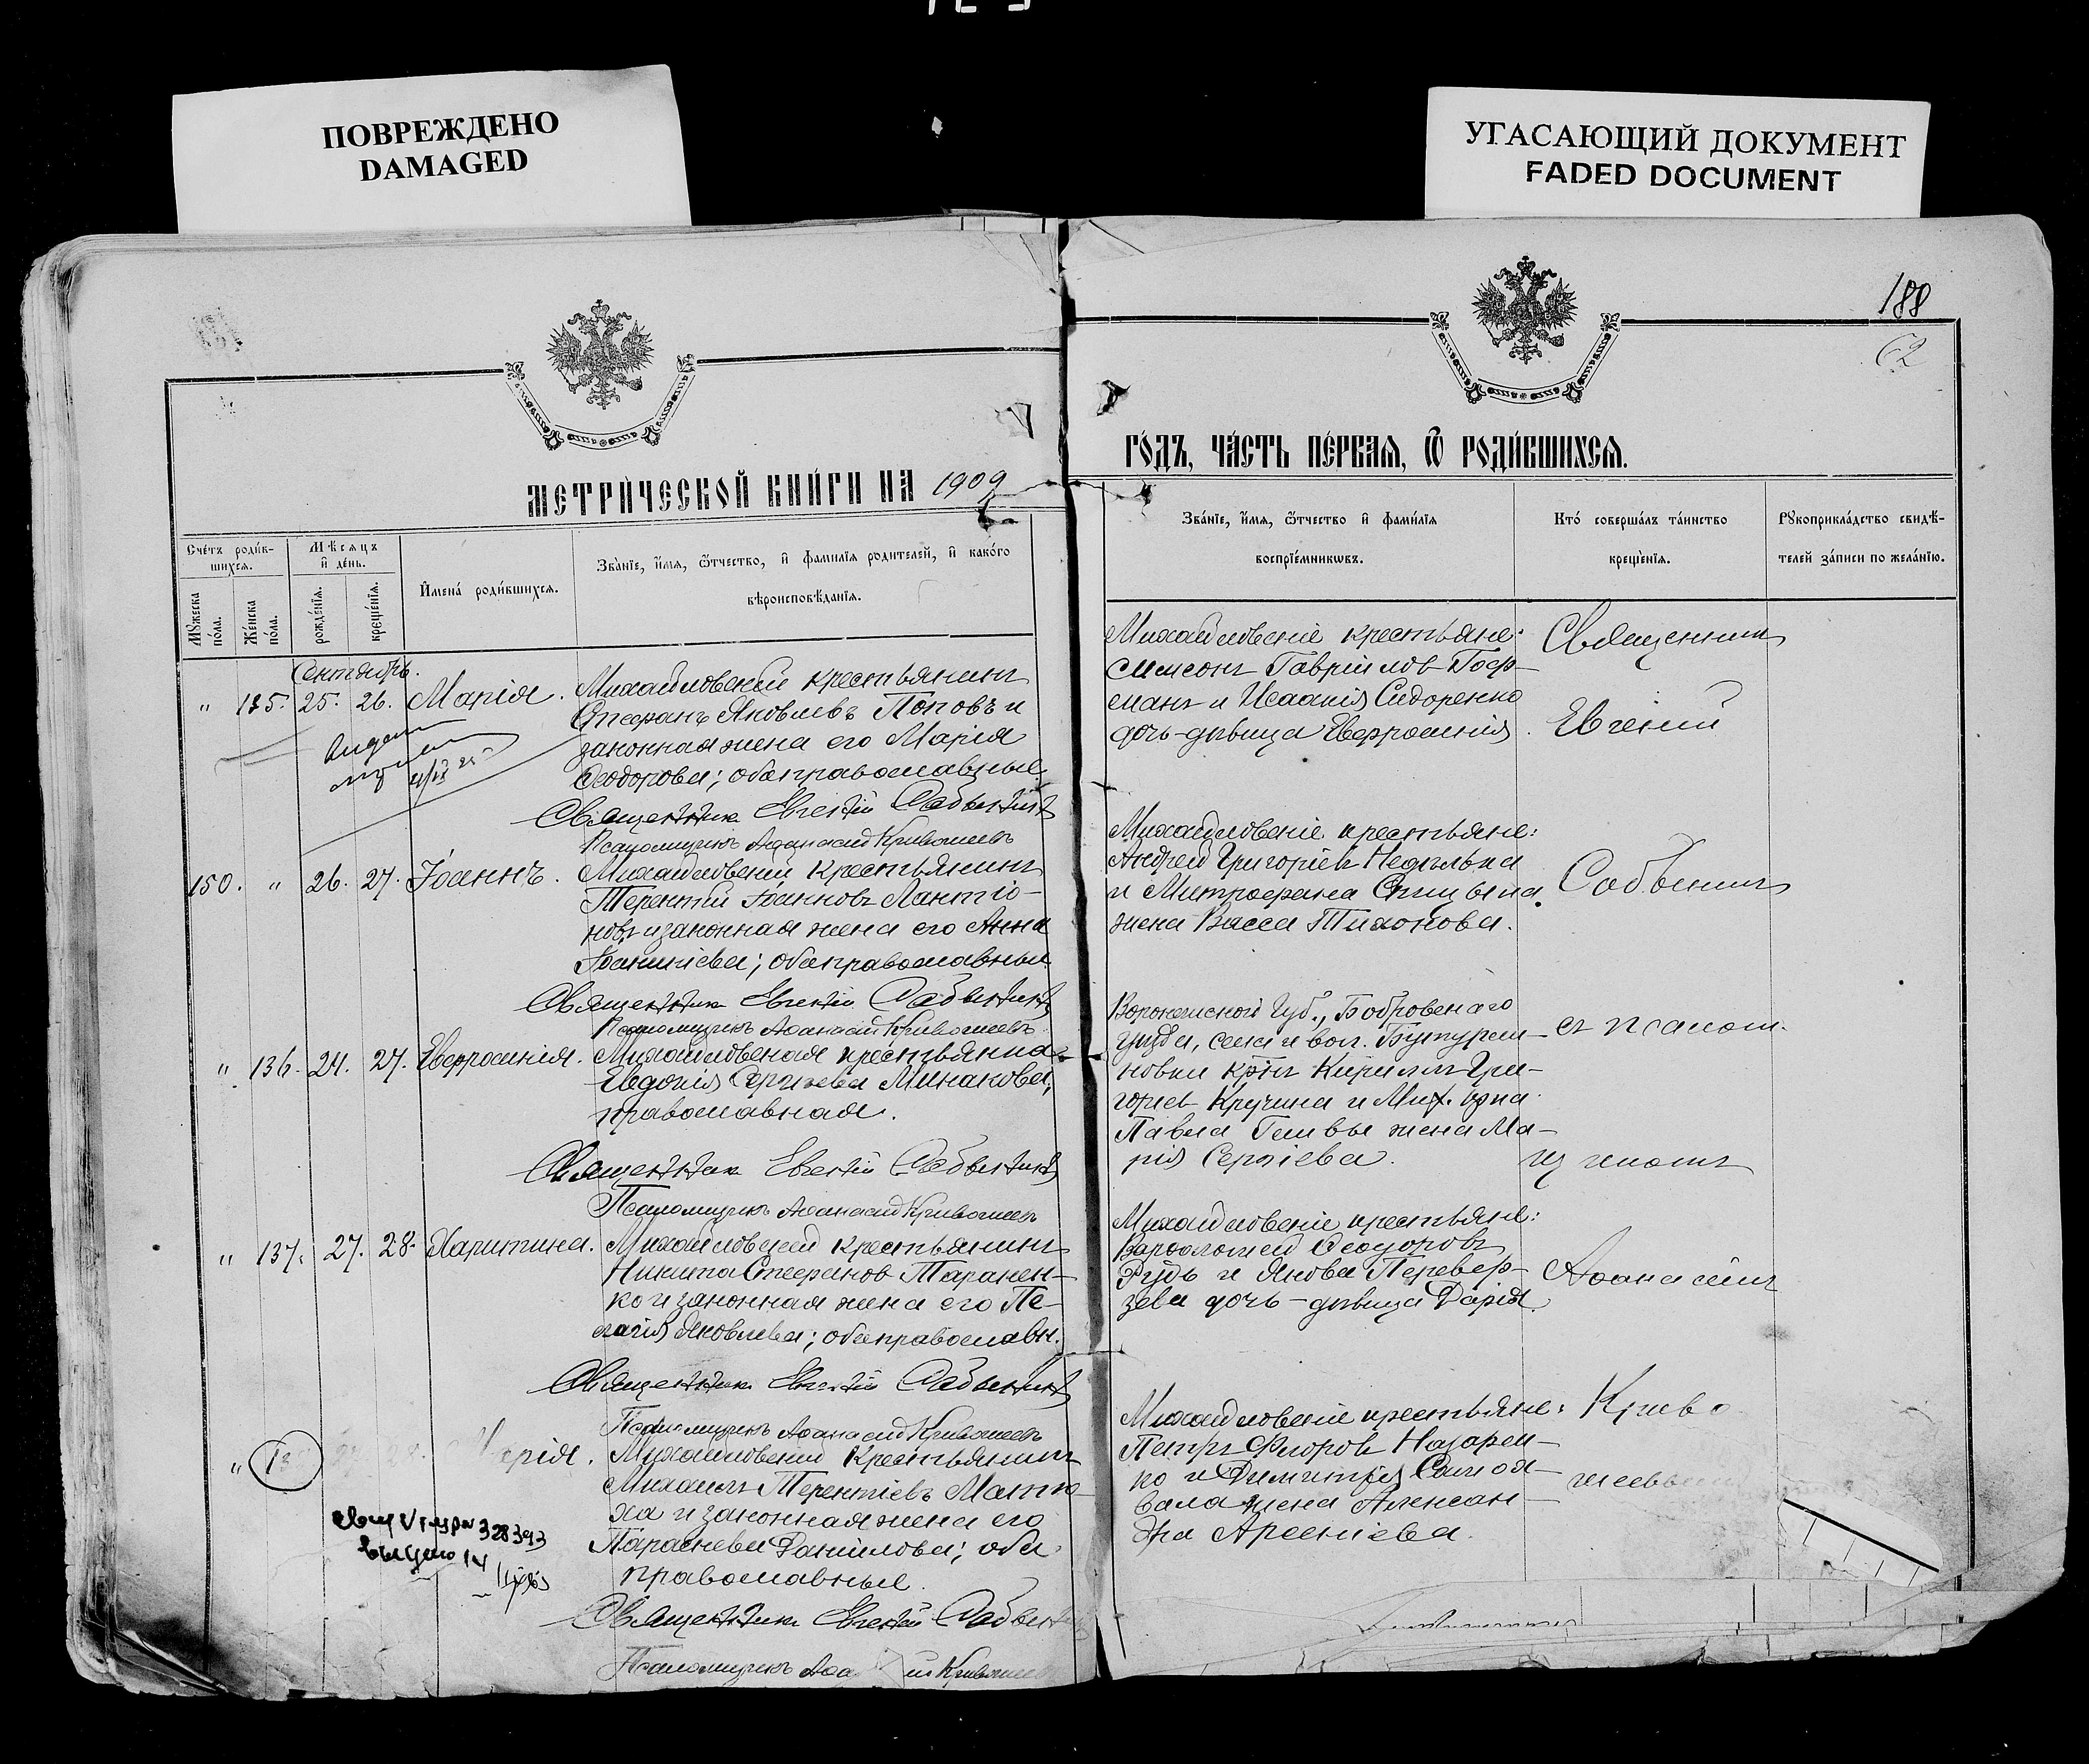 ПОВРЕЖДЕНО
DAMAGED
УГАСАЮЩИЙ ДОКУМЕНТ
FADED DOCUMENT
188
62
МЕТРИ́ЧЕСКОЙ КНИ́ГИ НА 1909
ГО́ДЪ, ЧА́СТЬ ПЕ́РВАѦ, Ѿ РОДИ́ВШИХСѦ.
Сче́тъ роди́в-
шихсѧ.
Мꙋ́жеска по́ла.
Же́нска по́ла.
Мѣ́сѧцъ
и҆ де́нь.
рожде́нїѧ.
креще́нїѧ.
И҆мена̀ роди́вшихсѧ.
Зва́нїе, и҆́мѧ, ѻ҆́тчество, и҆ фамилїѧ родителей, и҆ како́го
вѣроисповѣ́данїѧ.
Зва́нїе, и҆́мѧ, ѻ҆́тчество и҆ фами́лїѧ
воспрїе́мникѡвъ.
Кто̀ соверша́лъ та́инство
креще́нїѧ.
Рꙋкоприкла́дство свидѣ́-
телей за́писи по жела́нїю.
Сентябрь.
" 135. 25. 26. Марія. Михайловскій крестьянинъ
Стефанъ Яковлевъ Поповъ и
законная жена его Марія
Ѳеодорова; оба православные.
Священникъ Евгеній Савбенинъ
Псаломщикъ Аѳанасій Кривошеевъ
Михайловскіе крестьяне:
Симеонъ Гавріиловъ Гоф-
манъ и Исаакія Сидоренко
дочь-дѣвица Евфросинія.
Священникъ
Евгеній
150. " 26. 27. Іоаннъ. Михайловскій крестьянинъ
Терентій Іоанновъ Лактіо-
новъ и законная жена его Анна
Іоанникіева; оба православные.
Священникъ Евгеній Савбенинъ
Псаломщикъ Аѳанасій Кривошеевъ
Михайловскіе крестьяне:
Андрей Григоріевъ Недѣлька
и Митрофана Спицына
жена Васса Тихонова.
" 136. 24. 27. Евфросинія. Михайловская крестьянка
Евдокія Сергіева Минакова,
православная.
Священникъ Евгеній Савбенинъ
Псаломщикъ Аѳанасій Кривошеевъ
Воронежской губ., Бобровскаго
уѣзда, села и вол. Бутурли-
новки кр-нъ Кириллъ Гри-
горіевъ Кручина и Мих. кр-на
Павла жена Ма-
рія Сергіева.
съ псалом-
щикомъ
" 137. 27. 28. Харитина. Михайловскій крестьянинъ
Никита Стефановъ Таранен-
ко и законная жена его Пе-
лагія Яковлева; оба православн.
Священникъ Евгеній Савбенинъ
Псаломщикъ Аѳанасій Кривошеевъ
Михайловскіе крестьяне:
Варѳоломей Ѳеодоровъ
Рудь и Якова Перевер-
зева дочь-дѣвица Дарія.
Аѳанасіемъ
" Марія. Михайловскій крестьянинъ
Михаилъ Терентіевъ Матю-
ха и законная жена его
Параскева Даніилова; оба
православные.
Священникъ Евгеній Савбенинъ
Псаломщикъ Кривошеевъ
Михайловскіе крестьяне:
Петръ Флоровъ Назарен-
ко и Димитрія Самой-
вала жена Алексан-
дра Арсеніева.
Криво
шеевы
328393